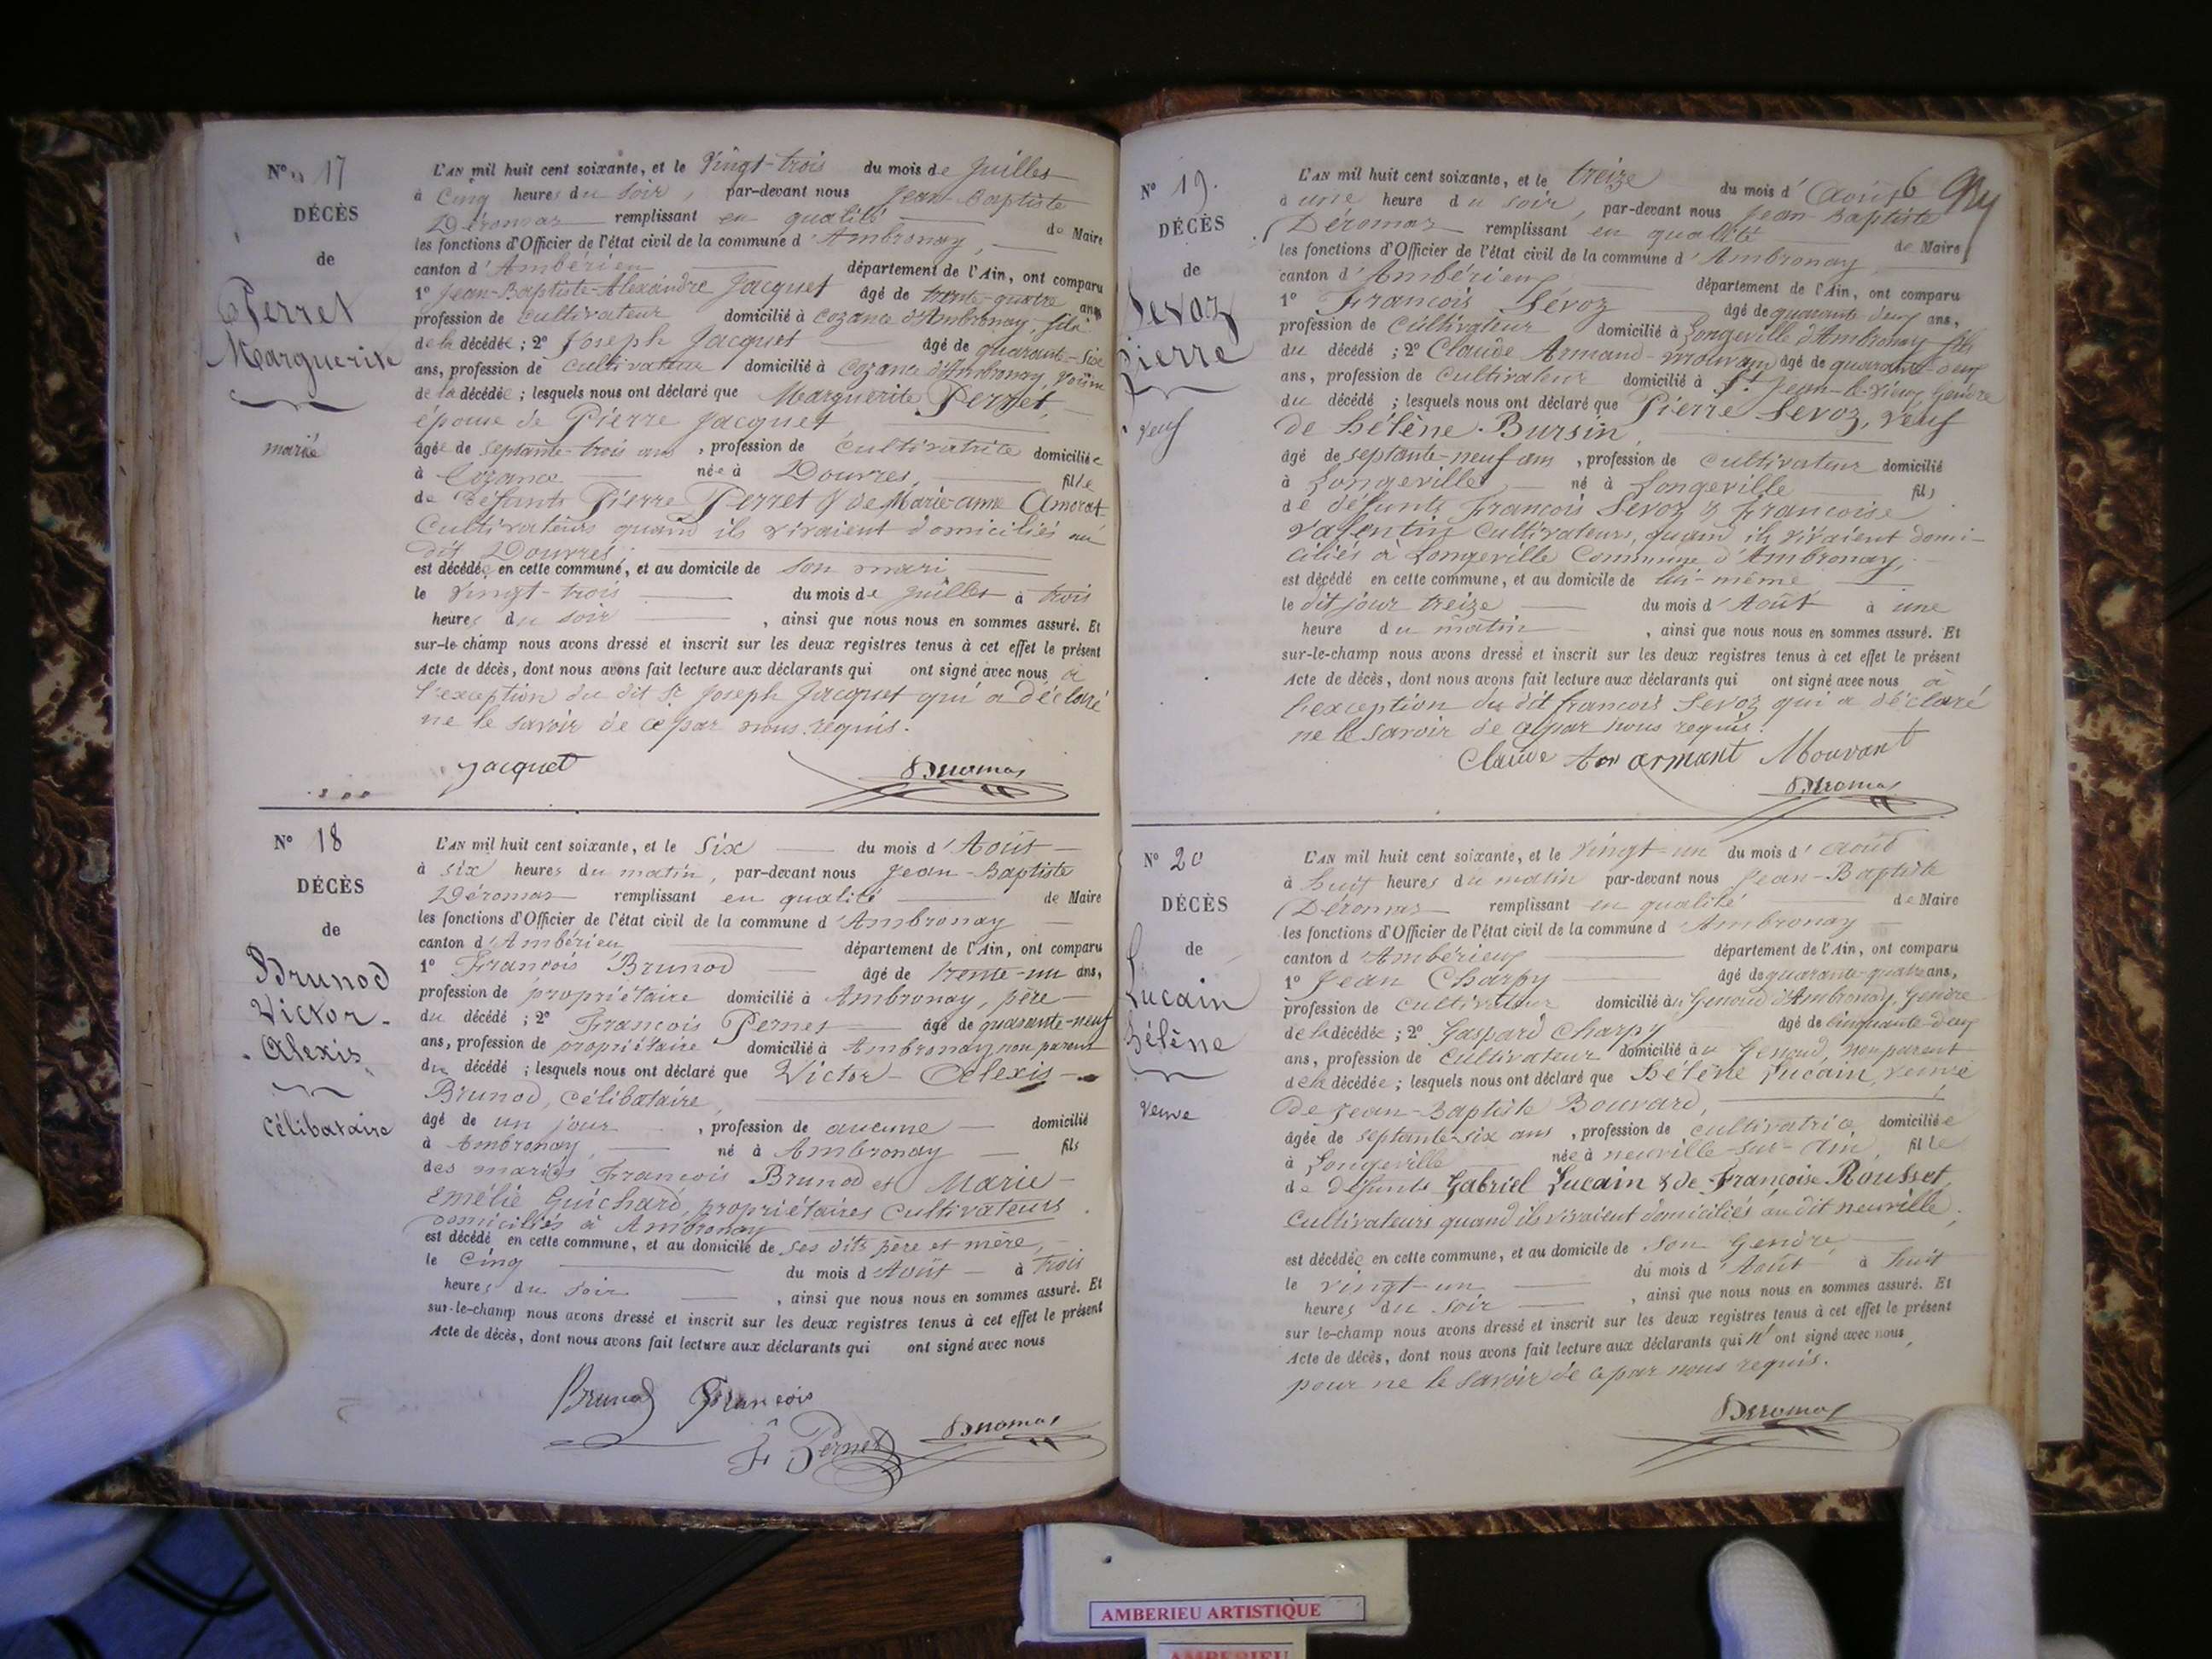 N° 17
DÉCÈS
de
Perret
Marguerite
mariée
L'AN mil huit cent soixante, et le Vingt-trois du mois de Juillet
à Cinq heures du soir, par-devant nous Jean-Baptiste
Déromas remplissant en qualité de Maire
les fonctions d'Officier de l'état civil de la commune d'Ambronay,
canton d'Ambérieu département de l'Ain, ont comparu
1° Jean-Baptiste-Alexandre Jacquet âgé de trente-quatre ans
profession de cultivateur domicilié à Cozance d'Ambronay, fils
de la décédée ; 2° Joseph Jacquet âgé de quarante-six
ans, profession de cultivateur domicilié à Cozance d'Ambronay, voisin
de la décédée ; lesquels nous ont déclaré que Marguerite Perret,
épouse de Pierre Jacquet
âgée de septante-trois ans, profession de cultivatrice domiciliée
à Cozance née à Douvres, fille
de défunts Pierre Perret & de Marie-anne Amorat
Cultivateurs quand ils vivaient domiciliés au
dit Douvres,
est décédée en cette commune, et au domicile de son mari
le Vingt-trois du mois de Juillet à trois
heures du soir, ainsi que nous nous en sommes assuré. Et
sur-le-champ nous avons dressé et inscrit sur les deux registres tenus à cet effet le présent
Acte de décès, dont nous avons fait lecture aux déclarants qui ont signé avec nous à
l'exception du dit Sr Joseph Jacquet qui a déclaré
ne le savoir de ce par nous requis.
Jacquet Deromas
N° 18
DÉCÈS
de
Brunod
Victor-
Alexis
célibataire
L'AN mil huit cent soixante, et le Six du mois d'Août
à six heures du matin, par-devant nous Jean-Baptiste
Déromas remplissant en qualité de Maire
les fonctions d'Officier de l'état civil de la commune d'Ambronay
canton d'Ambérieu département de l'Ain, ont comparu
1° François Brunod âgé de trente-un ans,
profession de propriétaire domicilié à Ambronay, père
du décédé ; 2° François Pernet âgé de quarante-neuf
ans, profession de propriétaire domicilié à Ambronay, non parent
du décédé ; lesquels nous ont déclaré que Victor-Alexis
Brunod, célibataire,
âgé de un jour, profession de aucune domicilié
à Ambronay, né à Ambronay fils
des mariés François Brunod et Marie-
Emélie Guichard, propriétaires Cultivateurs
domiciliés à Ambronay
est décédé en cette commune, et au domicile de ses dits père et mère,
le Cinq du mois d'Août à trois
heures du soir, ainsi que nous nous en sommes assuré. Et
sur-le-champ nous avons dressé et inscrit sur les deux registres tenus à cet effet le présent
Acte de décès, dont nous avons fait lecture aux déclarants qui ont signé avec nous
Brunod François
F Pernet Deromas
N° 19.
DÉCÈS
de
Sevoz
Pierre
veuf
L'AN mil huit cent soixante, et le treize du mois d'Août
à une heure du soir, par-devant nous Jean-Baptiste
Déromas remplissant en qualité de Maire
les fonctions d'Officier de l'état civil de la commune d'Ambronay
canton d'Ambérieu département de l'Ain, ont comparu
1° François Sévoz âgé de quarante deux ans,
profession de cultivateur domicilié à Longeville d'Ambronay fils
du décédé ; 2° Claude Armand-Mouvant âgé de quarante-deux
ans, profession de cultivateur domicilié à St Jean-le-Vieux, Gendre
du décédé ; lesquels nous ont déclaré que Pierre Sevoz, Veuf
de Hélène Bursin
âgé de septante-neuf ans, profession de cultivateur domicilié
à Longeville né à Longeville fils
de défunts François Sevoz & Françoise
Valentin Cultivateurs, quand ils vivaient domi-
ciliés à Longeville Commune d'Ambronay,
est décédé en cette commune, et au domicile de lui-même
le dit jour treize du mois d'Août à une
heure du matin, ainsi que nous nous en sommes assuré. Et
sur-le-champ nous avons dressé et inscrit sur les deux registres tenus à cet effet le présent
Acte de décès, dont nous avons fait lecture aux déclarants qui ont signé avec nous à
l'exception du dit françois Sevoz qui a déclaré
ne le savoir de ce par nous requis.
Claude armant Mouvant
Deromas
N° 20
DÉCÈS
de
Lucain
Hélène
veuve
L'AN mil huit cent soixante, et le Vingt-un du mois d'Août
à huit heures du matin par-devant nous Jean-Baptiste
Déromas remplissant en qualité de Maire
les fonctions d'Officier de l'état civil de la commune d'Ambronay
canton d'Ambérieu département de l'Ain, ont comparu
1° Jean Charpy âgé de quarante-quatre ans,
profession de Cultivateur domicilié au Genoud d'Ambronay, Gendre
de la décédée ; 2° Gaspard Charpy âgé de cinquante-deux
ans, profession de Cultivateur domicilié au Genoud, non parent
de la décédée ; lesquels nous ont déclaré que Hélène Lucain, veuve
de Jean-Baptiste Bouvard,
âgée de septante-six ans, profession de cultivatrice domiciliée
à Longeville née à neuville-sur-Ain, fille
de défunts Gabriel Lucain & de Françoise Rousset,
Cultivateurs quand ils vivaient domiciliés au dit neuville,
est décédée en cette commune, et au domicile de son Gendre
le vingt-un du mois d'Août à huit
heures du soir, ainsi que nous nous en sommes assuré. Et
sur le-champ nous avons dressé et inscrit sur les deux registres tenus à cet effet le présent
Acte de décès, dont nous avons fait lecture aux déclarants qui n'ont signé avec nous,
pour ne le savoir de ce par nous requis.
Deromas
AMBERIEU ARTISTIQUE
AMBERIEU